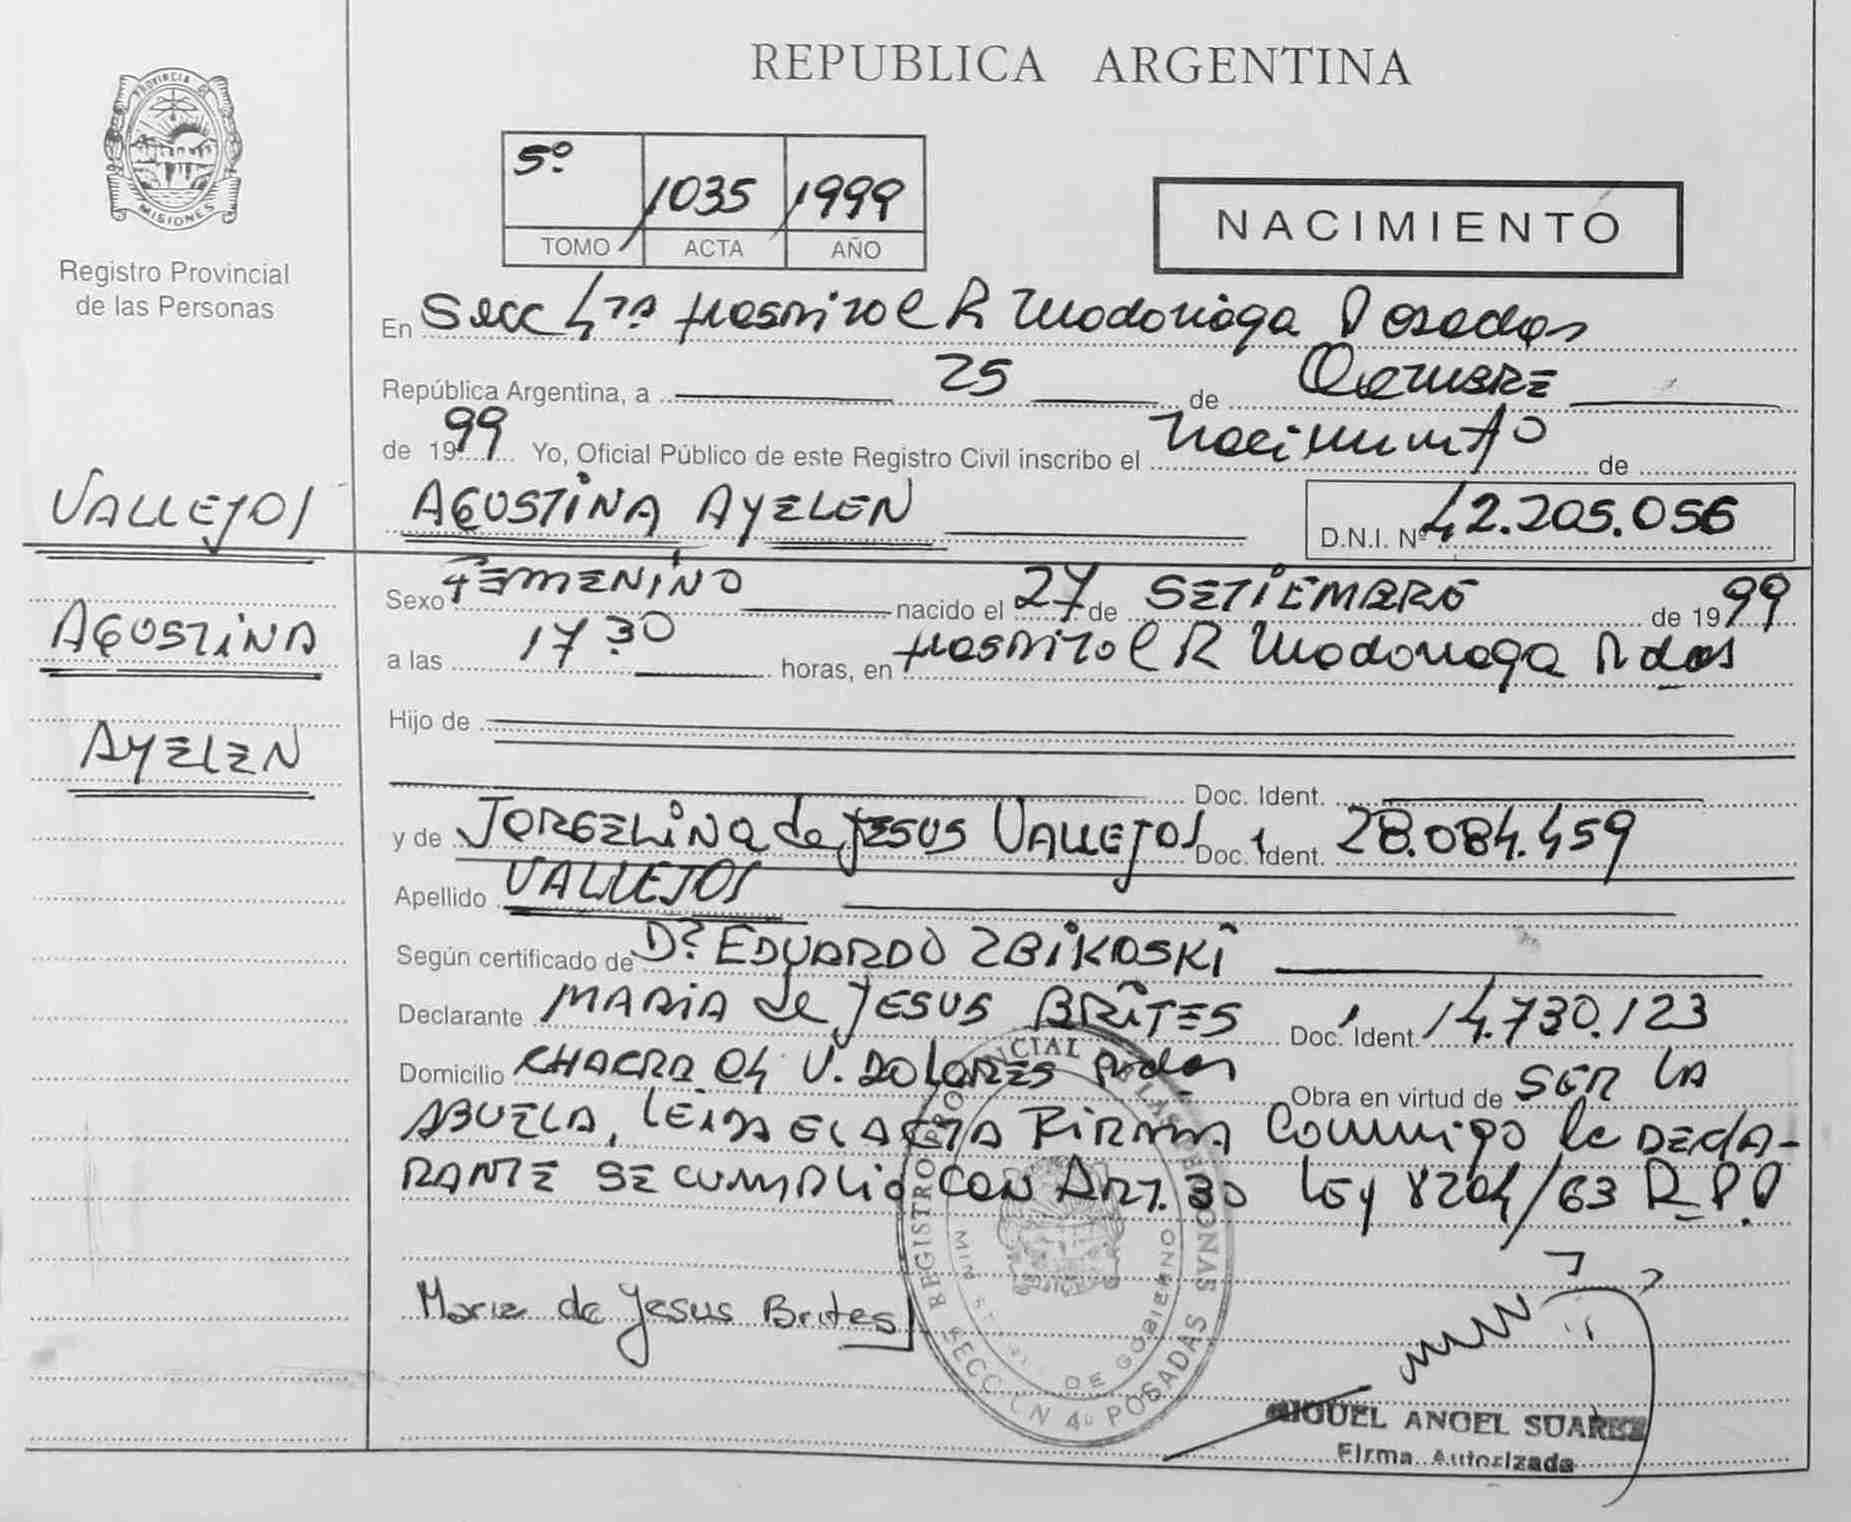 REPUBLICA ARGENTINA
PROVINCIA DE
MISIONES
Registro Provincial
de las Personas
5º 1035 1999
TOMO ACTA AÑO
NACIMIENTO
En Secc 4ta Hospital R Madariaga Posadas
República Argentina, a 25 de Octubre
de 1999 Yo, Oficial Público de este Registro Civil inscribo el nacimiento de
VALLEJOS
AGUSTINA AYELEN D.N.I. Nº 42.205.056
Sexo FEMENINO nacido el 27 de SETIEMBRE de 1999
AGUSTINA
a las 17 30 horas, en Hospital R Madariaga Pdas
Hijo de
AYELEN
Doc. Ident.
y de JORGELINA de JESUS VALLEJOS Doc. Ident. 28.084.459
Apellido VALLEJOS
Según certificado de Dr. EDUARDO ZBIKOSKI
Declarante MARIA de JESUS BRITES Doc. Ident. 14.730.123
Domicilio CHACRA 04 V. DOLORES Pdas Obra en virtud de SER LA
ABUELA, LEIDA EL ACTA FIRMA Conmigo la DECLA-
RANTE SE CUMPLIO CON ART. 30 LEY 8204/63 R.P.P
Maria de Jesus Brites
REGISTRO PROVINCIAL DE LAS PERSONAS
SECCION 4º POSADAS
DE GOBIERNO
MIGUEL ANGEL SUAREZ
Firma Autorizada